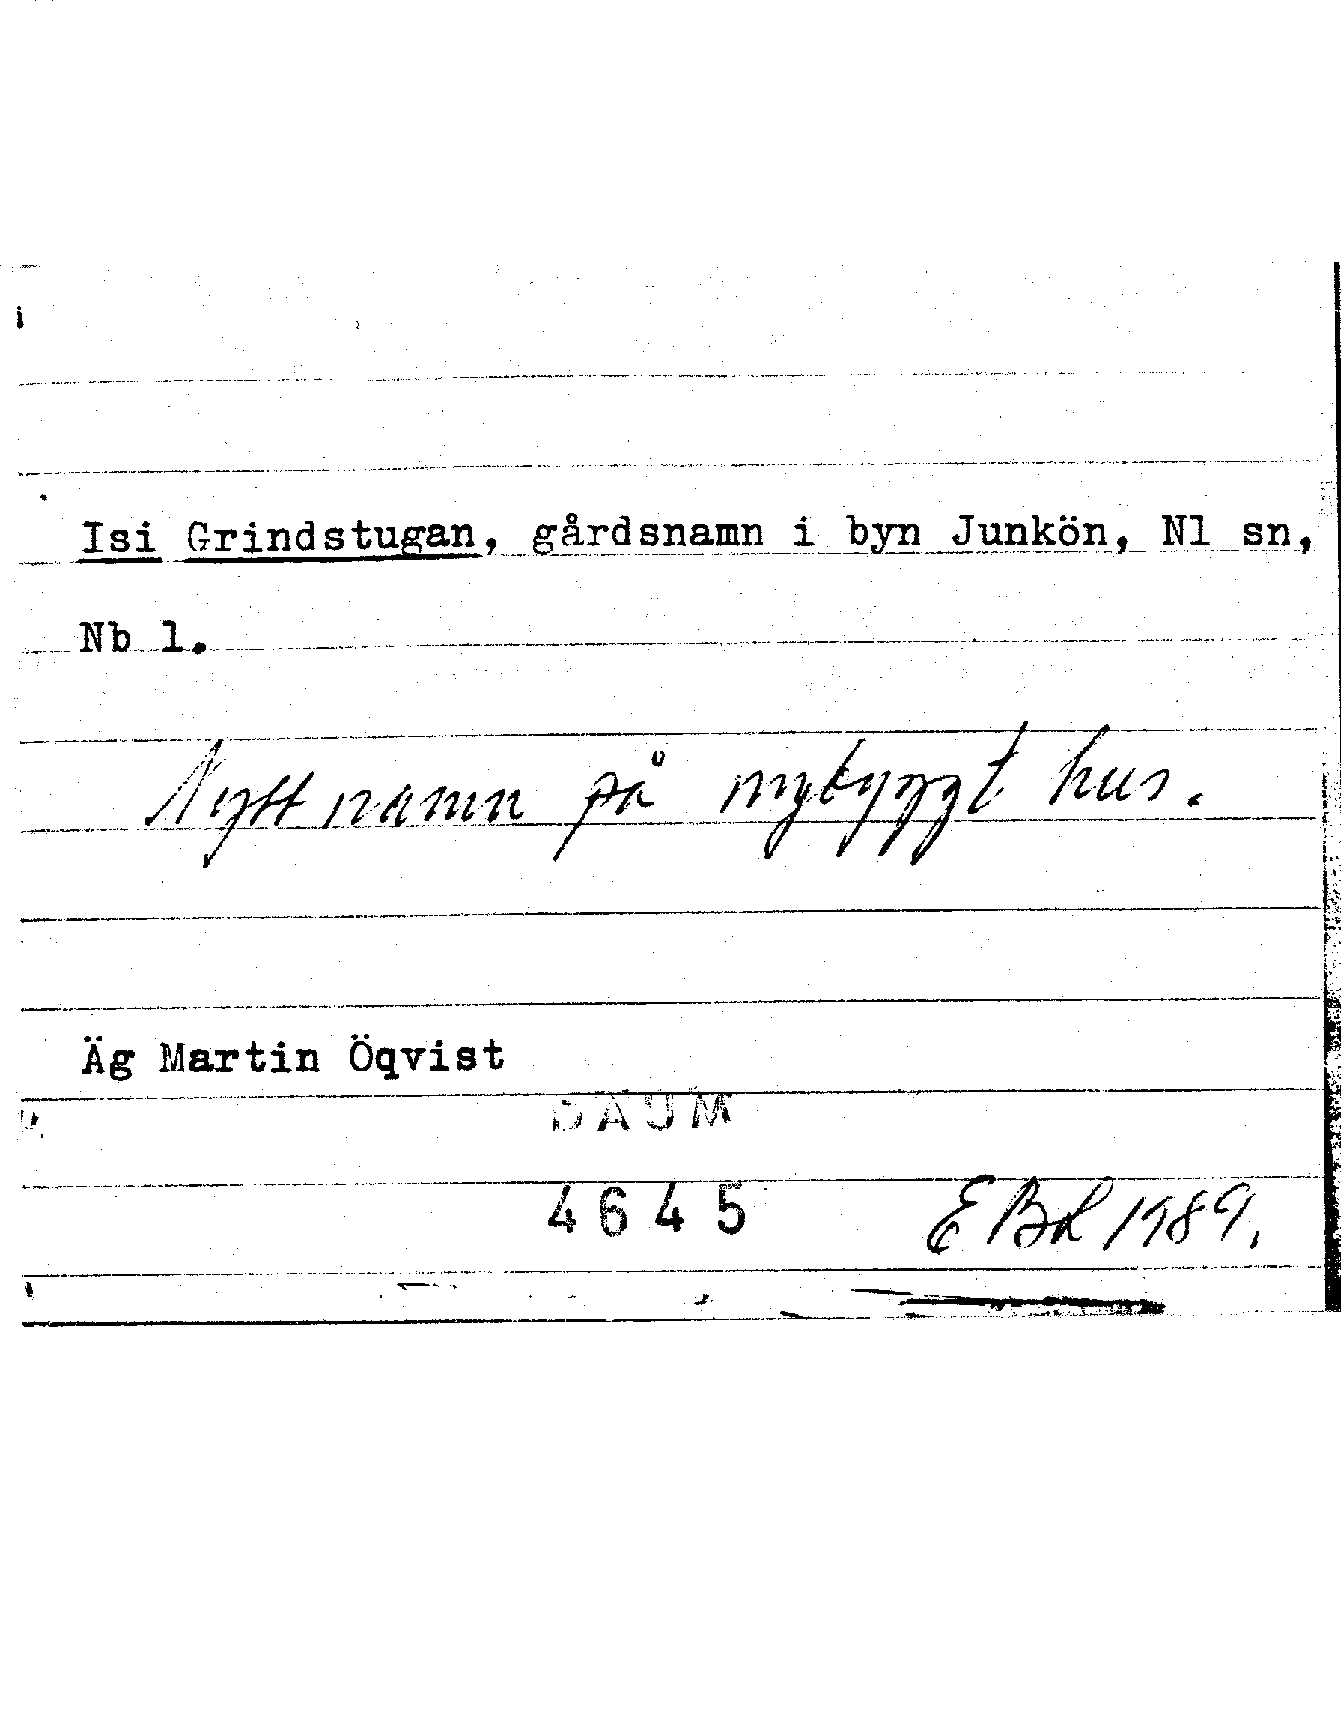 Isi Grindstugan, gårdsnamn i byn Junkön, Nl sn,
Nb l.
Nytt namn på nybyggt hus.
Äg Martin Öqvist
DAUM
4645
EBL 1989.